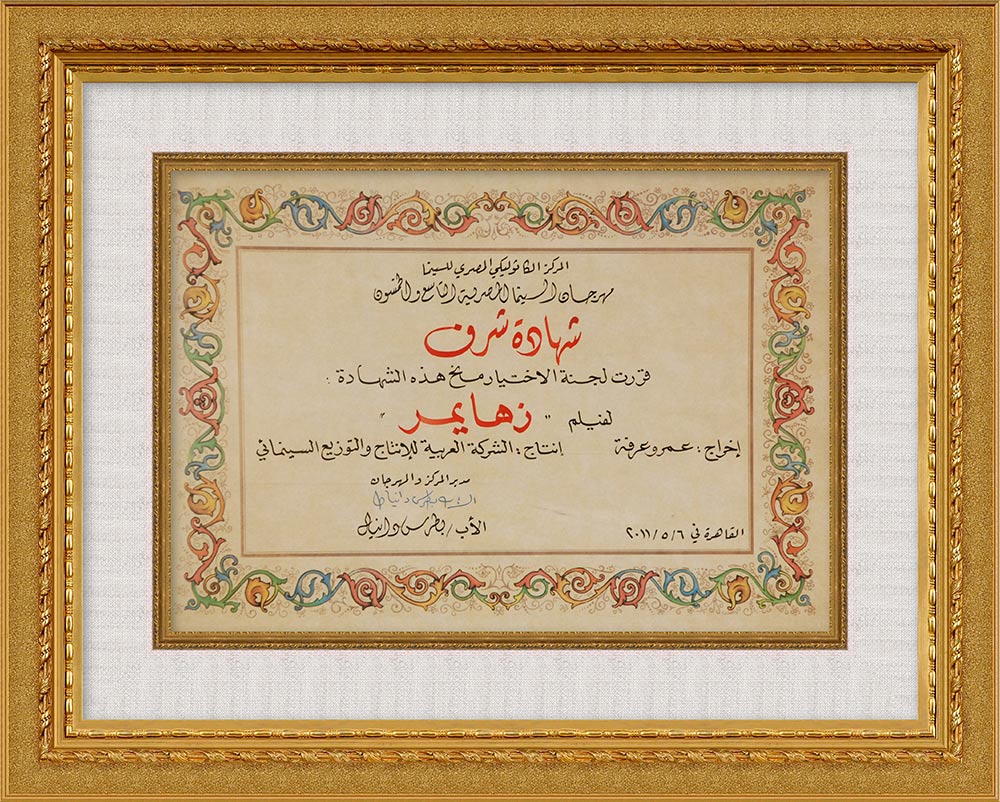 المركز الكاثوليكي المصري للسينما
مهرجان السينما المصرية التاسع والخمسون
شهادة شرف
قررت لجنة الاختيار منح هذه الشهادة :
لفيلم " زهايمر "
إخراج : عمرو عرفة إنتاج : الشركة العربية للإنتاج والتوزيع السينمائي
مدير المركز والمهرجان
الأب بطرس دانيال
القاهرة في ٢٠١١/٥/٦ الأب / بطرس دانيال